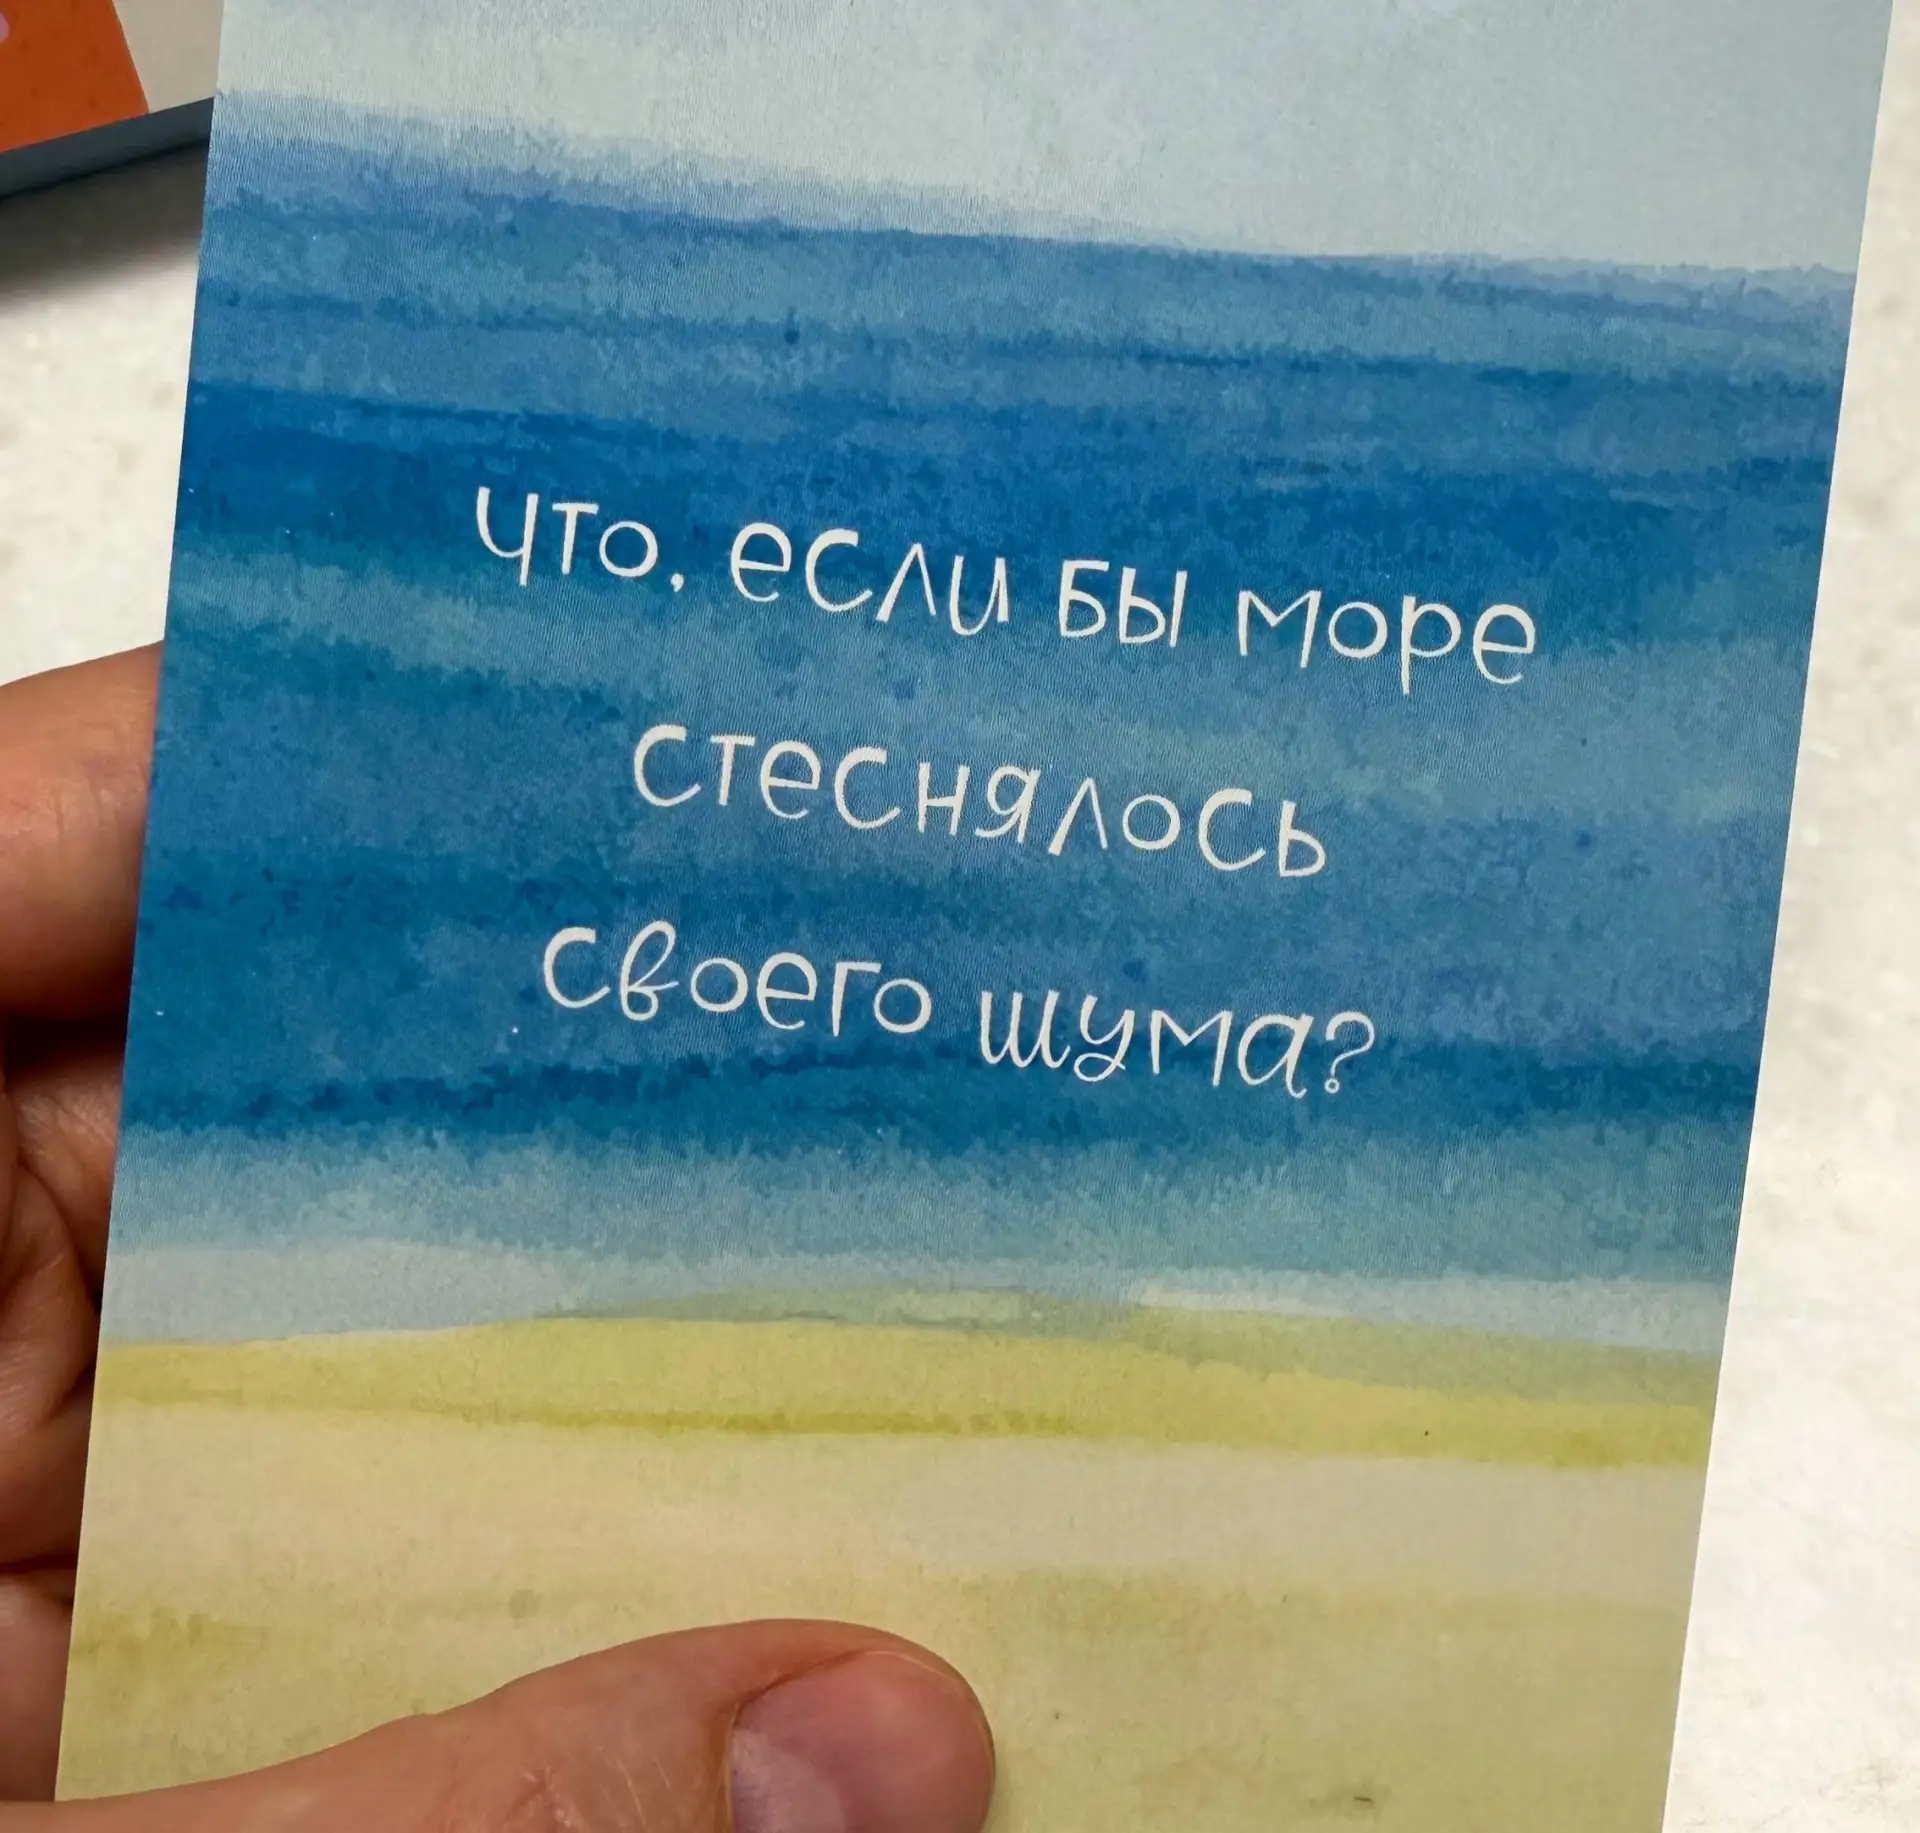 что, если бы море
стеснялось
своего шума?